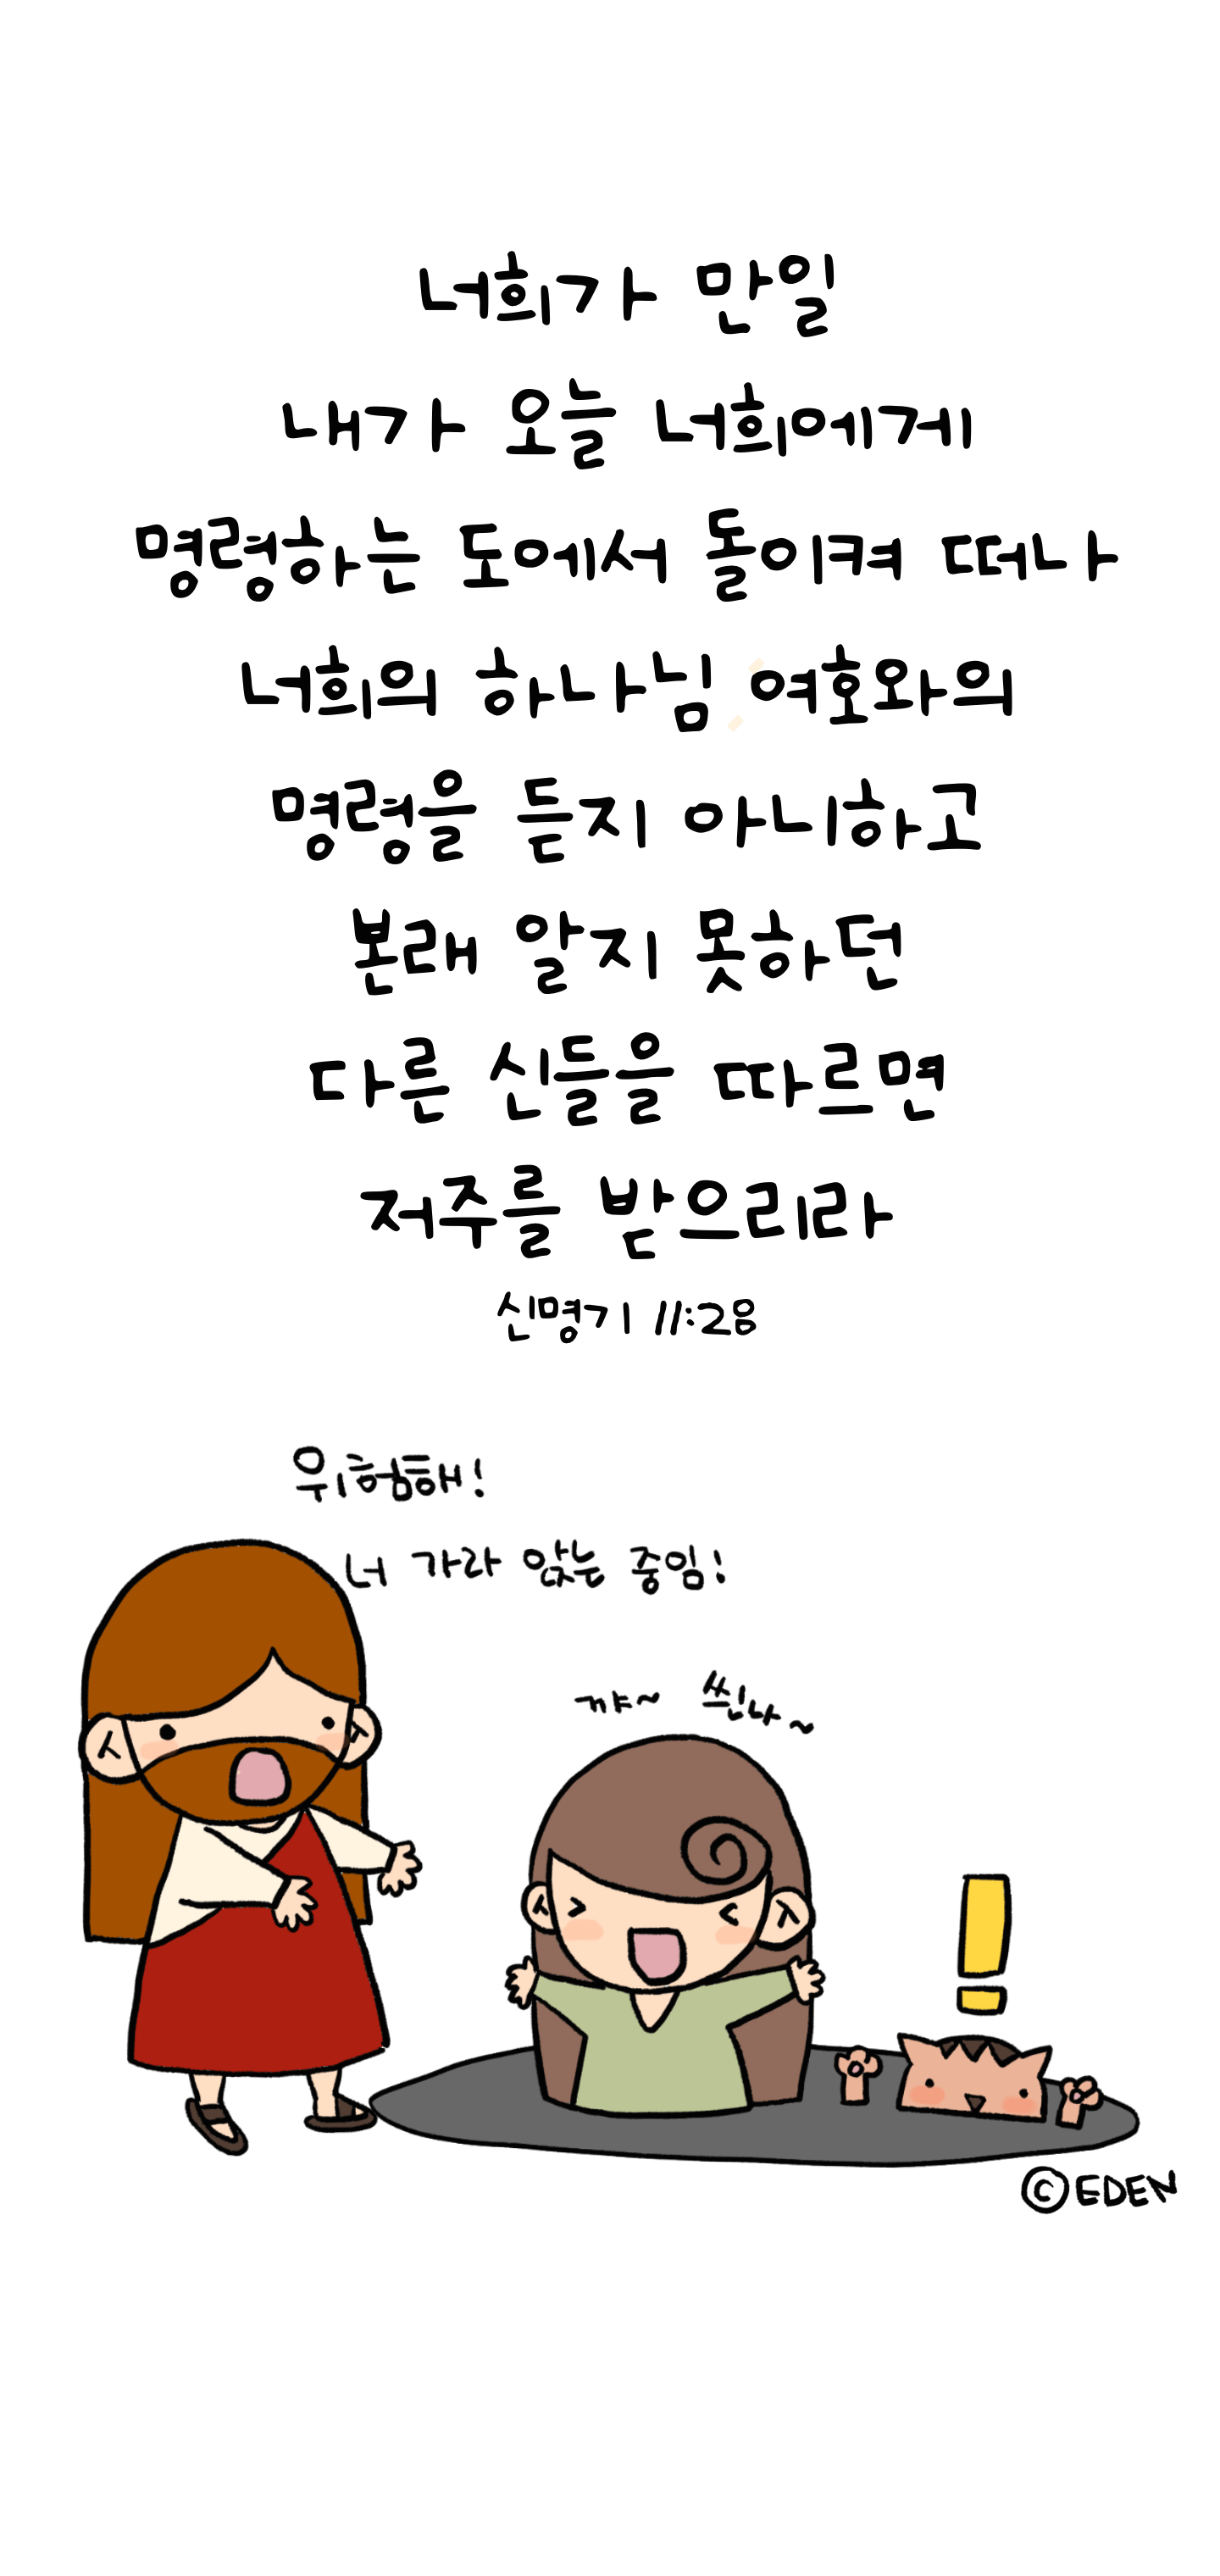 너희가 만일
내가 오늘 너희에게
명령하는 도에서 돌이켜 떠나
너희의 하나님 여호와의
명령을 듣지 아니하고
본래 알지 못하던
다른 신들을 따르면
저주를 받으리라
신명기 11:28
위험해!
너 가라 앉는 중임!
꺄~ 씐나~
©EDEN